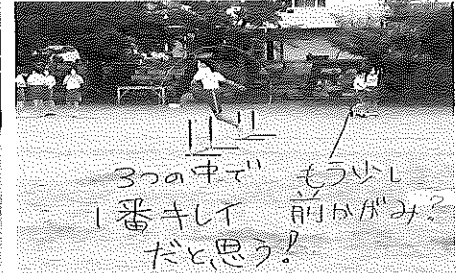 3つの中で
1番キレイ
だと思う!
もう少し
前かがみ?